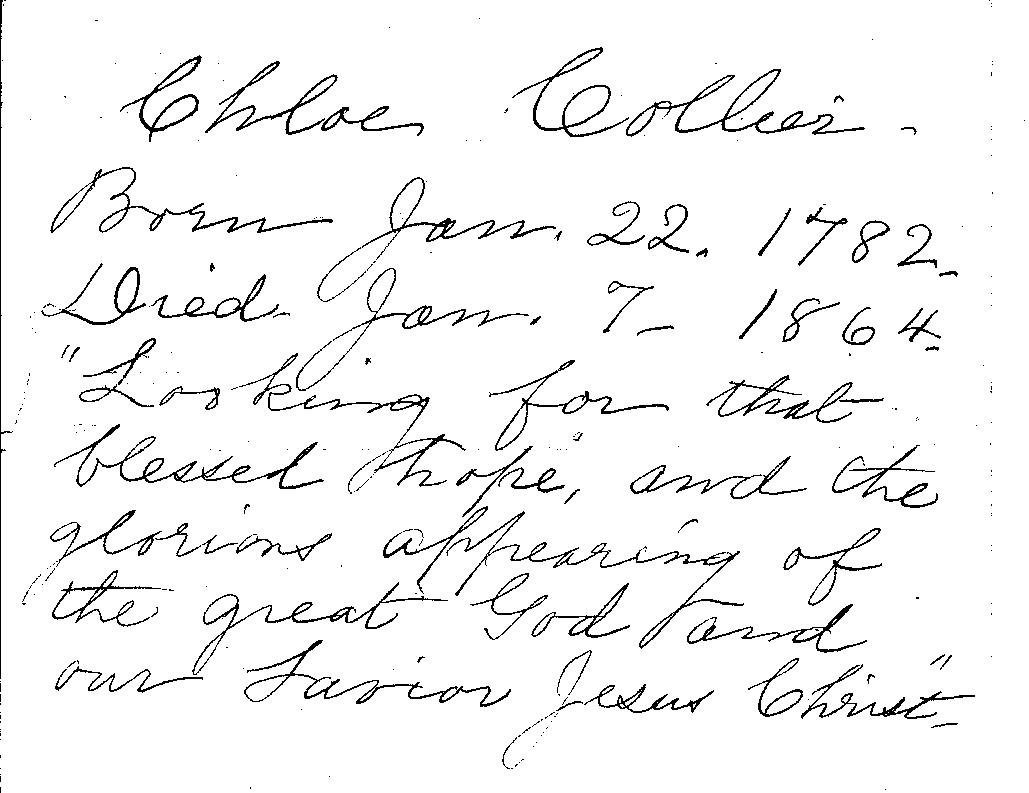 Chloe Collier -
Born Jan. 22. 1782.
Died Jan. 7 - 1864.
"Looking for that
blessed hope, and the
glorious appearing of
the great God and
our Savior Jesus Christ"